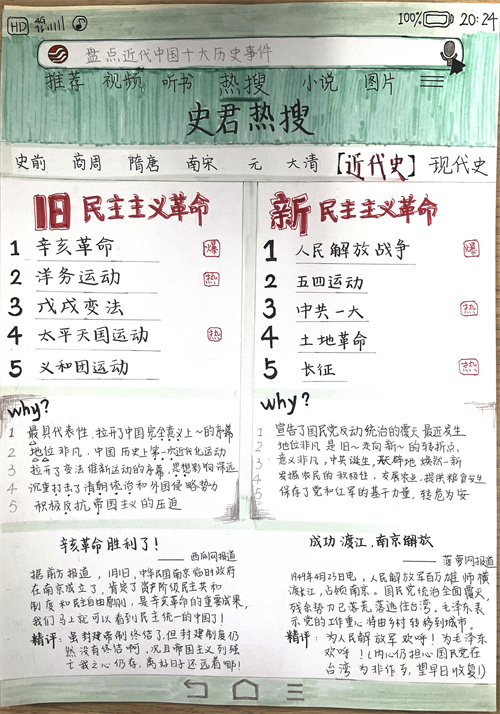 HD 4G 100% 20:24
盘点近代中国十大历史事件
推荐 视频 听书 热搜 小说 图片
史君热搜
史前 商周 隋唐 南宋 元 大清 【近代史】 现代史
旧民主主义革命
1 辛亥革命 爆
2 洋务运动 热
3 戊戌变法
4 太平天国运动 热
5 义和团运动
新民主主义革命
1 人民解放战争 爆
2 五四运动
3 中共一大 热
4 土地革命
5 长征 热
why?
1 最具代表性,拉开了中国完全意义上~的序幕
2 地位非凡,中国历史上第一次近代化运动
3 拉开了变法维新运动的序幕,思想影响深远
4 沉重打击了清朝统治和外国侵略势力
5 积极反抗帝国主义的压迫
why?
1 宣告了国民党反动统治的覆灭 最近发生
2 地位非凡 是旧~走向新~的转折点
3 意义非凡,中共诞生,天辟地 焕然一新
4 发掘农民的积极性,发展农业,提供粮食安生
5 保存了党和红军的基干力量,转危为安
辛亥革命胜利了!
——西瓜网报道
据前方报道,1月1日,中华民国南京临时政府
在南京成立了,肯定了资产阶级民主共和
制度和民主自由原则,是辛亥革命的重要成果,
我们马上就可以看到民主统一的中国了!
精评:虽封建帝制终结了,但封建制度仍
然没有终结啊,况且帝国主义列强
亡我之心仍在,离好日子还远着哪!
成功渡江,南京解放
——菠萝网报道
1949年4月23日电,人民解放军百万雄师横
渡长江,占领南京。国民党统治全面覆灭,
残余势力已落荒荡逃往台湾。毛泽东表
示党的工作重心将由乡村转移到城市。
精评:为人民解放军欢呼!为毛泽东
欢呼!(内心仍担心国民党在
台湾为非作歹,望早日收复!)